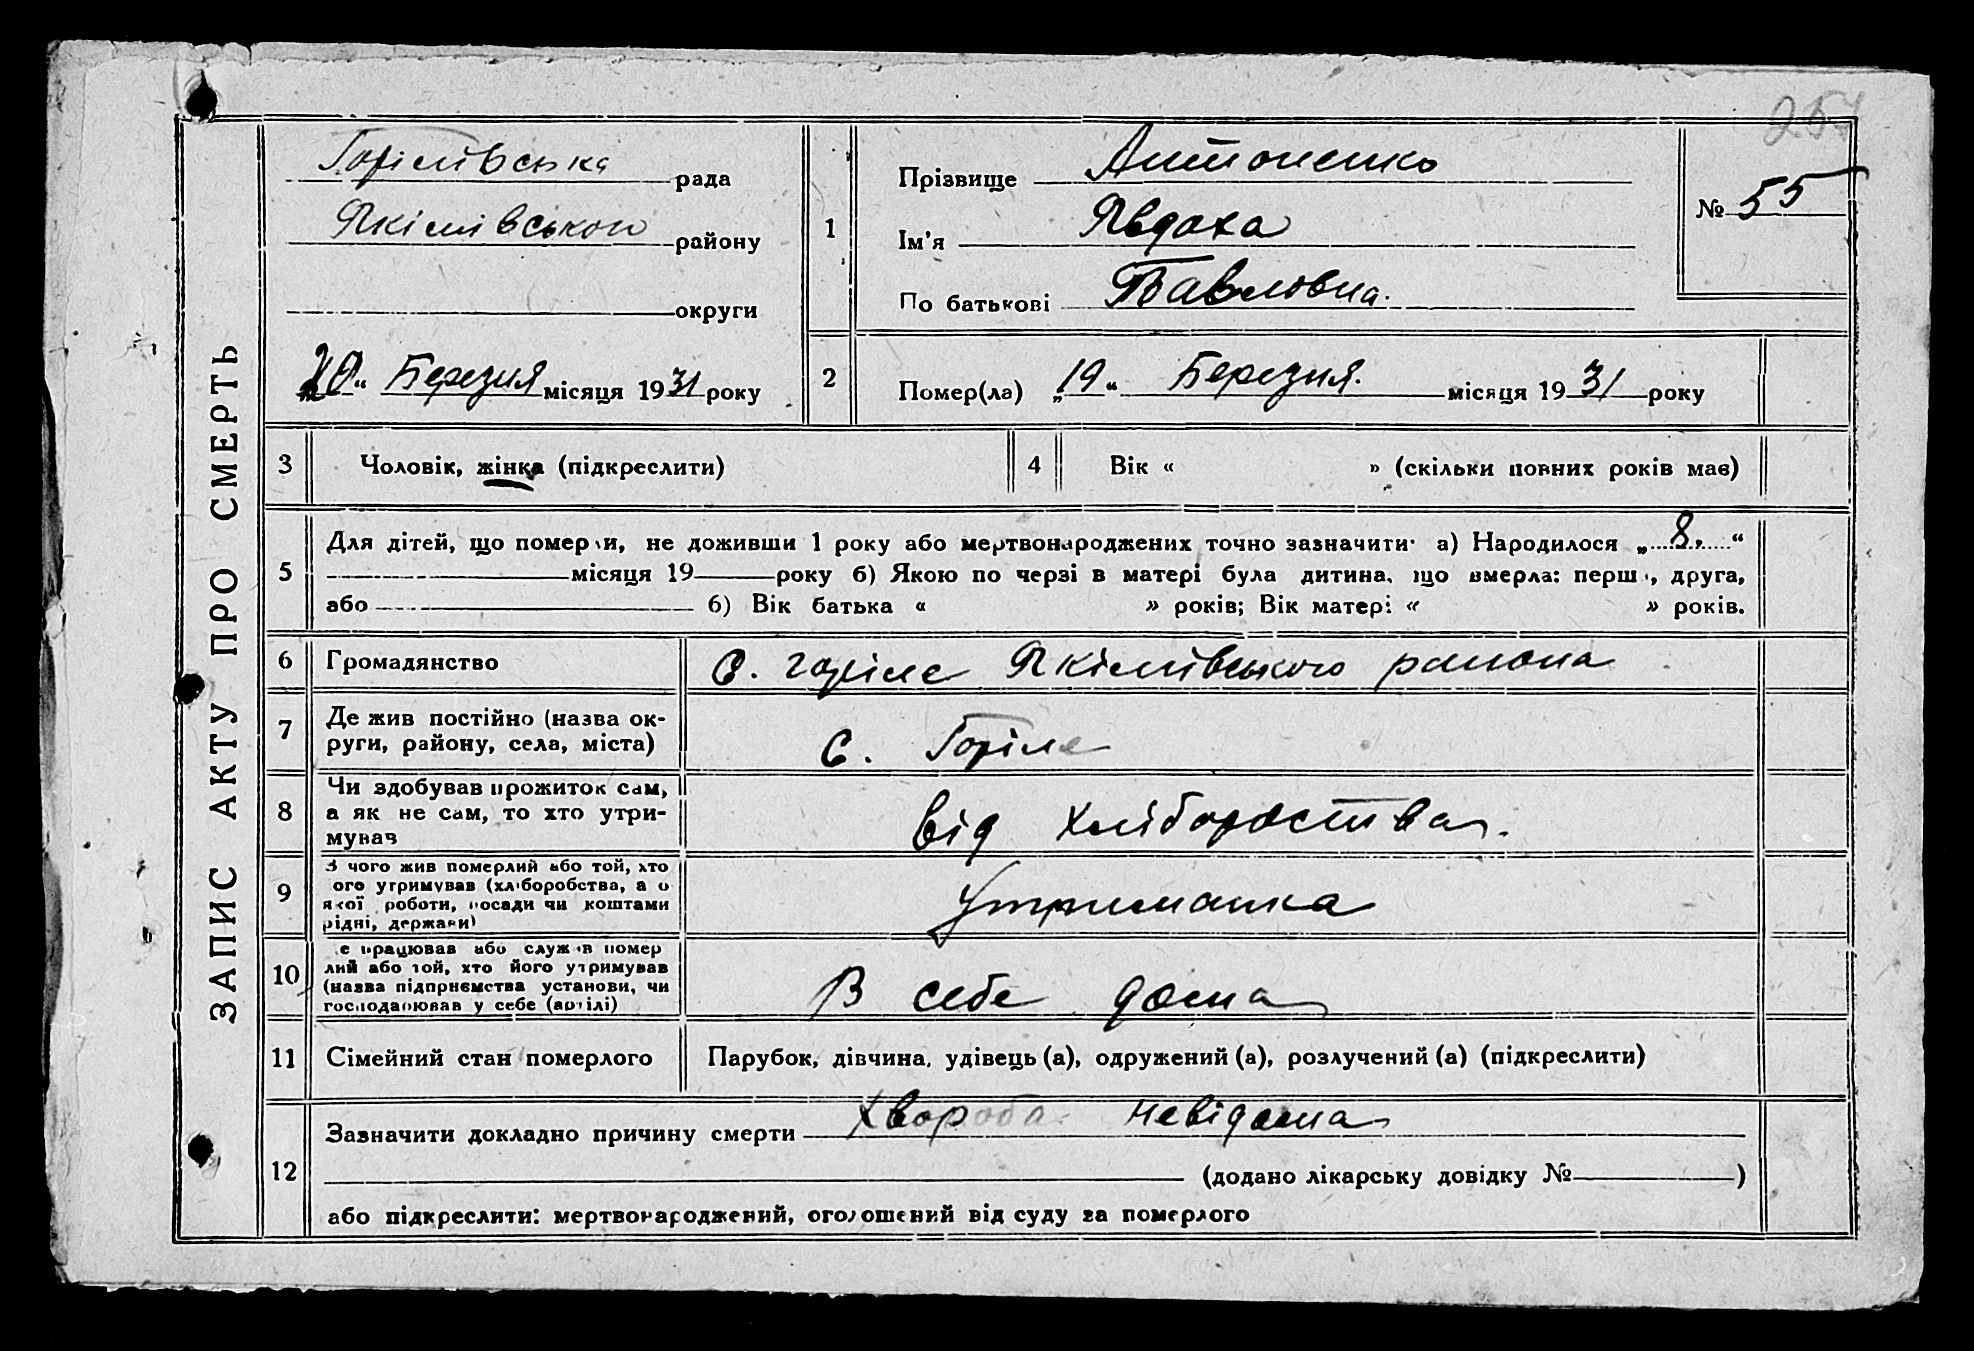 257
ЗАПИС АКТУ ПРО СМЕРТЬ
Горілівська рада
Якімівського району
округи
20 “ Березня місяця 1931 року
1
Прізвище Антоненко
Ім'я Явдоха
По батькові Павловна.
№ 55
2
Помер(ла) „ 19 “ Березня. місяця 1931 року
3 Чоловік, жінка (підкреслити)
4 Вік « » (скільки повних років має)
5 Для дітей, що померли, не доживши 1 року або мертвонароджених точно зазначити: а) Народилося „ 8, “
місяця 19 року б) Якою по черзі в матері була дитина, що вмерла: перша, друга,
або б) Вік батька « » років; Вік матері « » років.
6 Громадянство С. Горіле Якімівського района
7 Де жив постійно (назва ок-
руги, району, села, міста) С. Горіле
8 Чи здобував прожиток сам,
а як не сам, то хто утри-
мував від хліборoства.
9 З чого жив померлий або той, хто
ого утримував (хліборобства, а о
якої роботи, посади чи коштами
рідні, держави) Утриманка
10 е працював або служив помер
лий або той, хто його утримував
(назва підприємства установи, чи
господарював у себе (артілі) В себе дома
11 Сімейний стан померлого Парубок, дівчина, удівець (а), одружений (а), розлучений (а) (підкреслити)
12 Зазначити докладно причину смерти Хвороба невідома
(додано лікарську довідку № )
або підкреслити: мертвонароджений, оголошений від суду за померлого